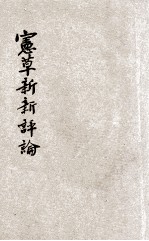 憲草新新評論